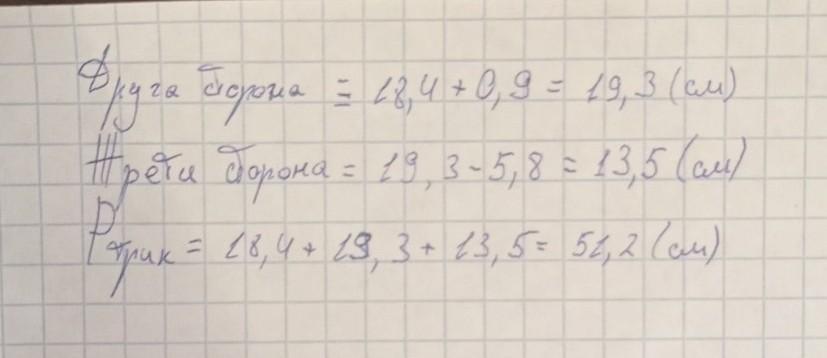 Друга сторона = 18,4 + 0,9 = 19,3 (см)
Третя сторона = 19,3 - 5,8 = 13,5 (см)
Pтрик = 18,4 + 19,3 + 13,5 = 51,2 (см)